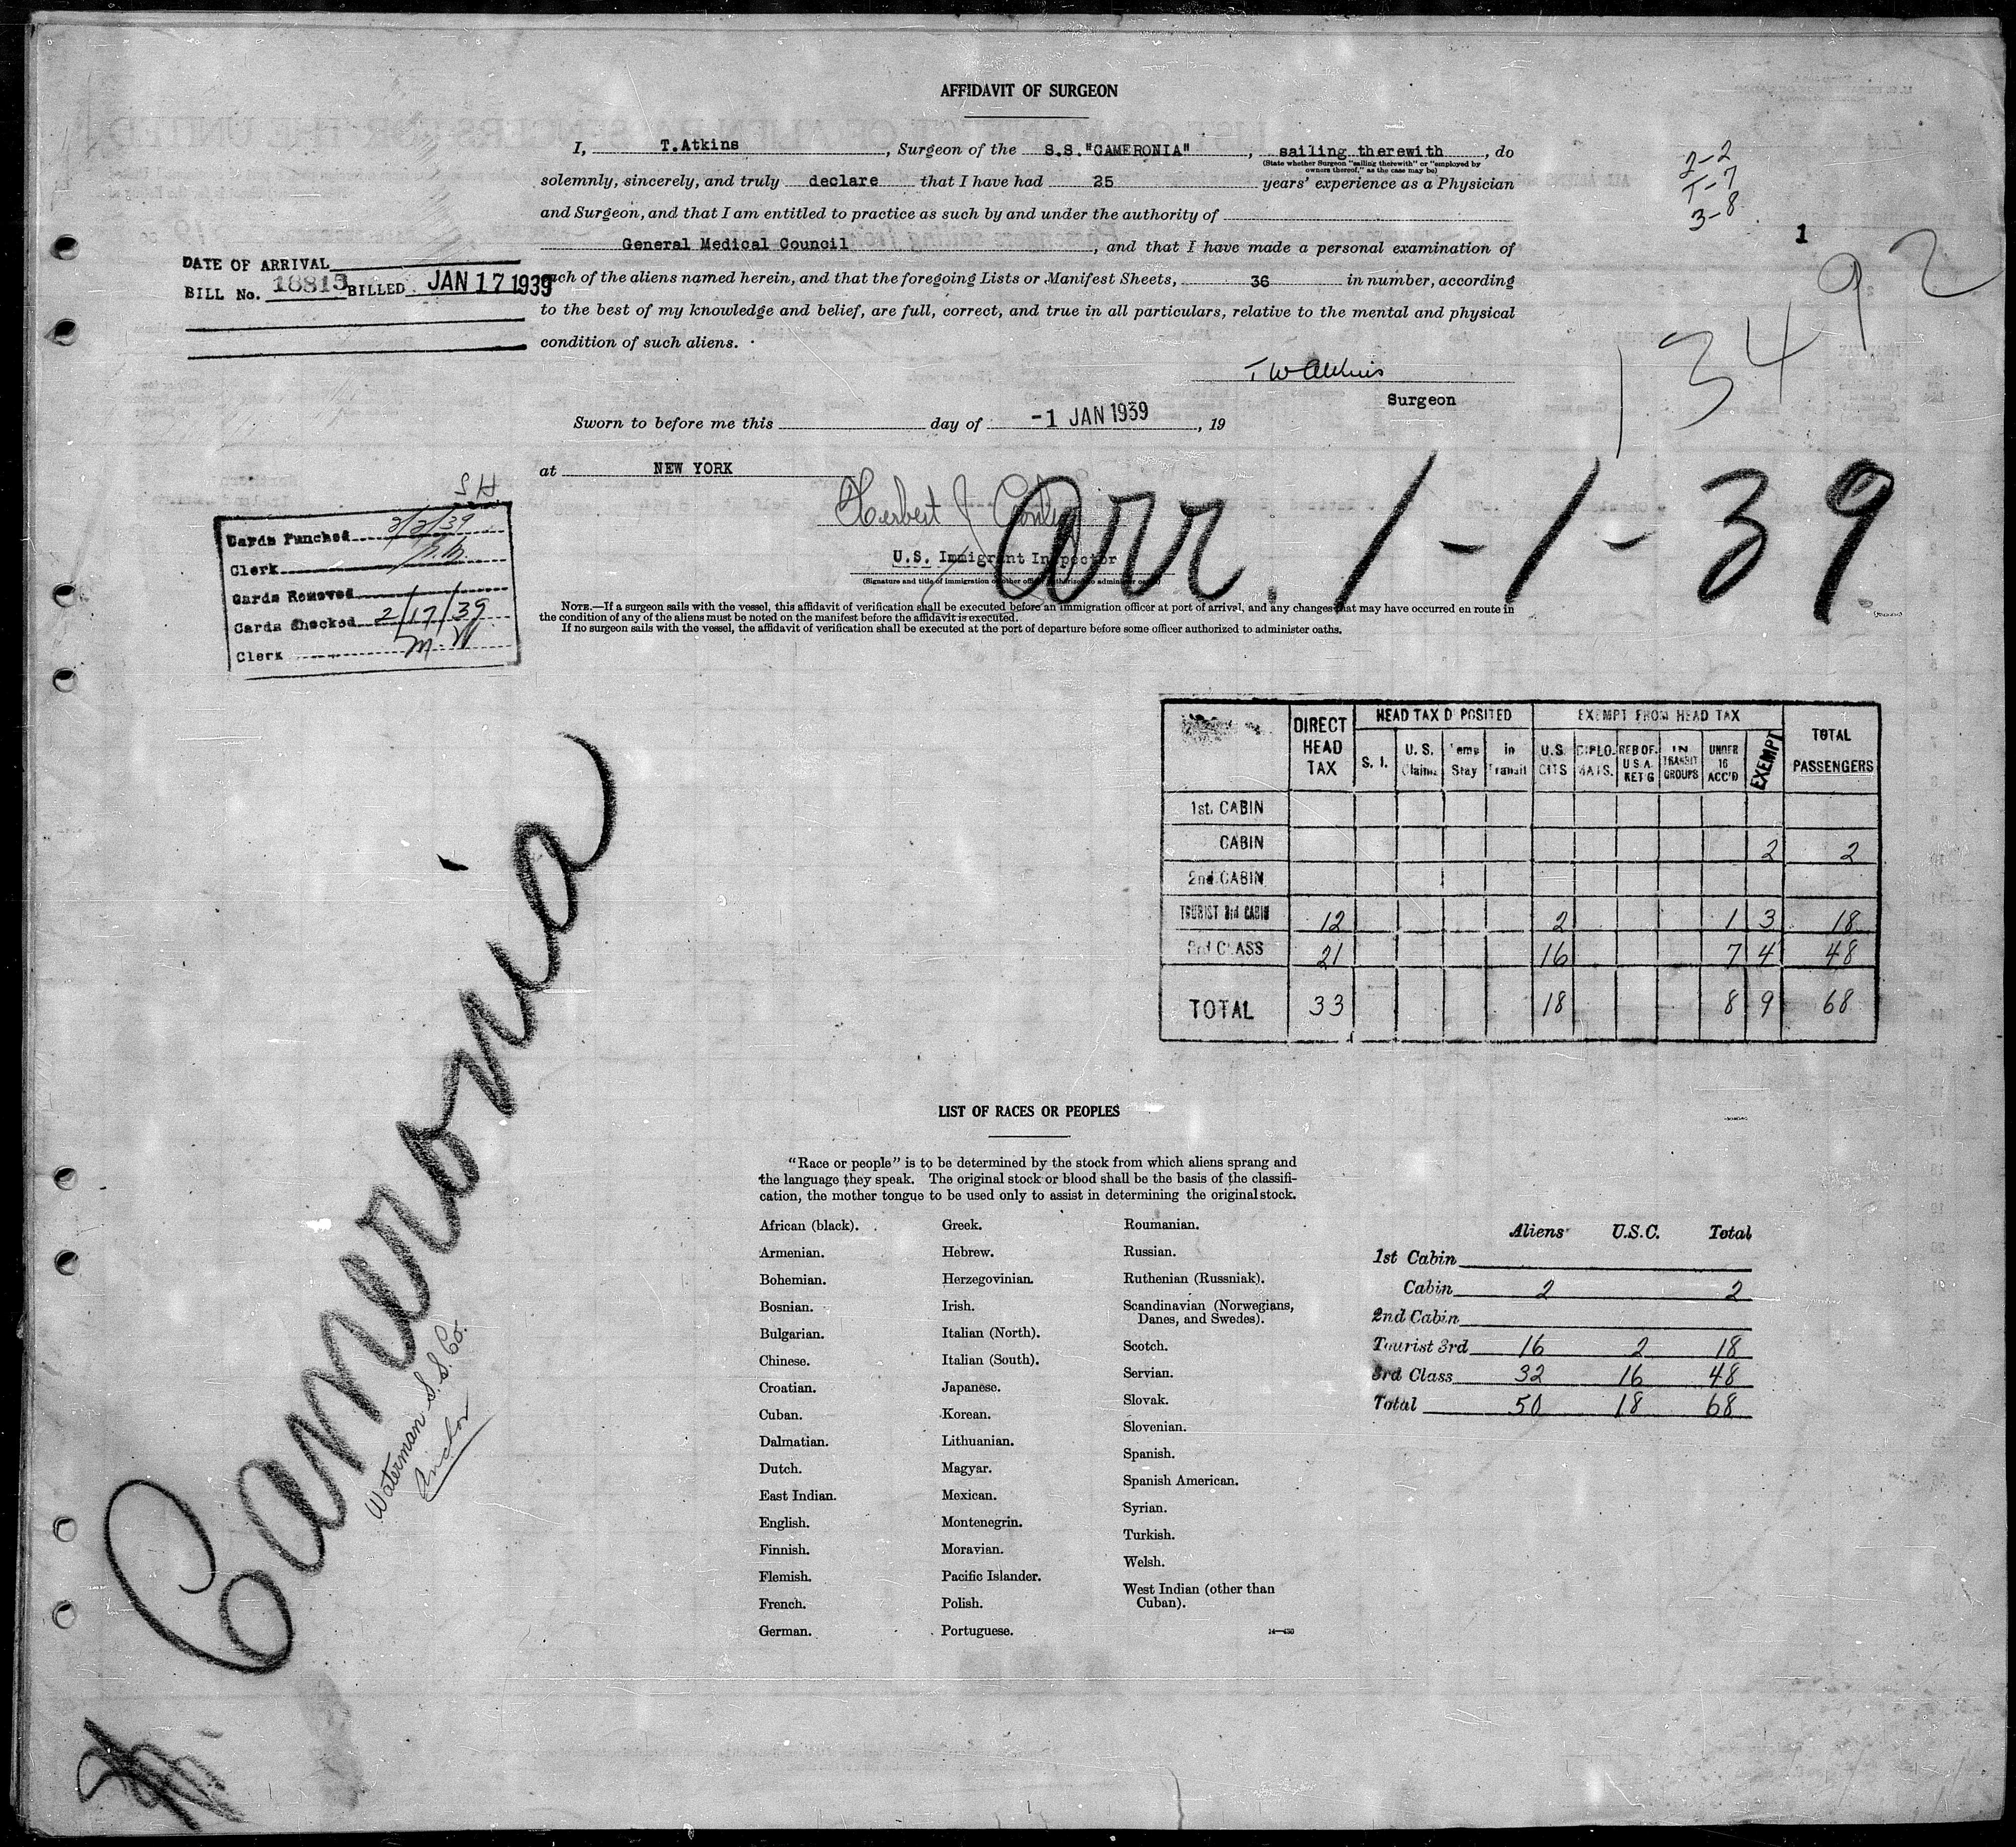 AFFIDAVIT OF SURGEON
I, T.Atkins, Surgeon of the S.S."CAMERONIA", sailing therewith, do
(State whether Surgeon "sailing therewith" or "employed by
owners thereof," as the case may be)
solemnly, sincerely, and truly declare that I have had 25 years' experience as a Physician
and Surgeon, and that I am entitled to practice as such by and under the authority of
General Medical Council, and that I have made a personal examination of
each of the aliens named herein, and that the foregoing Lists or Manifest Sheets, 36 in number, according
to the best of my knowledge and belief, are full, correct, and true in all particulars, relative to the mental and physical
condition of such aliens.
T W Atkins
Surgeon
Sworn to before me this day of -1 JAN 1939, 19
at NEW YORK
Herbert J
U.S. Immigrant Inspector
(Signature and title of immigration or other officer authorized to administer oaths)
NOTE.—If a surgeon sails with the vessel, this affidavit of verification shall be executed before an immigration officer at port of arrival, and any changes that may have occurred en route in
the condition of any of the aliens must be noted on the manifest before the affidavit is executed.
If no surgeon sails with the vessel, the affidavit of verification shall be executed at the port of departure before some officer authorized to administer oaths.
2-2
T-7
3-8
1
13492
Arr. 1-1-39
DATE OF ARRIVAL
BILL No. 18815 BILLED JAN 17 1939
SH
Cards Punched 2/2/39
Clerk
Cards Removed
Cards Checked 2/17/39
Clerk M.W
Cameronia
Waterman S.S. Co.
Anchor
DIRECT HEAD TAX
HEAD TAX D POSITED
EXEMPT FROM HEAD TAX
TOTAL PASSENGERS
S. I. U. S. Claims Temp Stay in Transit U.S. CITS DIPLO-MATS. RES OF U S A RET'G IN TRANSIT GROUPS UNDER 16 ACC'D EXEMPT
1st. CABIN
CABIN 2 2
2nd CABIN
TOURIST 3rd CABIN 12 2 1 3 18
3rd CLASS 21 16 7 4 48
TOTAL 33 18 8 9 68
LIST OF RACES OR PEOPLES
"Race or people" is to be determined by the stock from which aliens sprang and
the language they speak. The original stock or blood shall be the basis of the classifi-
cation, the mother tongue to be used only to assist in determining the original stock.
African (black).
Armenian.
Bohemian.
Bosnian.
Bulgarian.
Chinese.
Croatian.
Cuban.
Dalmatian.
Dutch.
East Indian.
English.
Finnish.
Flemish.
French.
German.
Greek.
Hebrew.
Herzegovinian.
Irish.
Italian (North).
Italian (South).
Japanese.
Korean.
Lithuanian.
Magyar.
Mexican.
Montenegrin.
Moravian.
Pacific Islander.
Polish.
Portuguese.
Roumanian.
Russian.
Ruthenian (Russniak).
Scandinavian (Norwegians,
Danes, and Swedes).
Scotch.
Servian.
Slovak.
Slovenian.
Spanish.
Spanish American.
Syrian.
Turkish.
Welsh.
West Indian (other than
Cuban).
14—430
Aliens U.S.C. Total
1st Cabin
Cabin 2 2
2nd Cabin
Tourist 3rd 16 2 18
3rd Class 32 16 48
Total 50 18 68